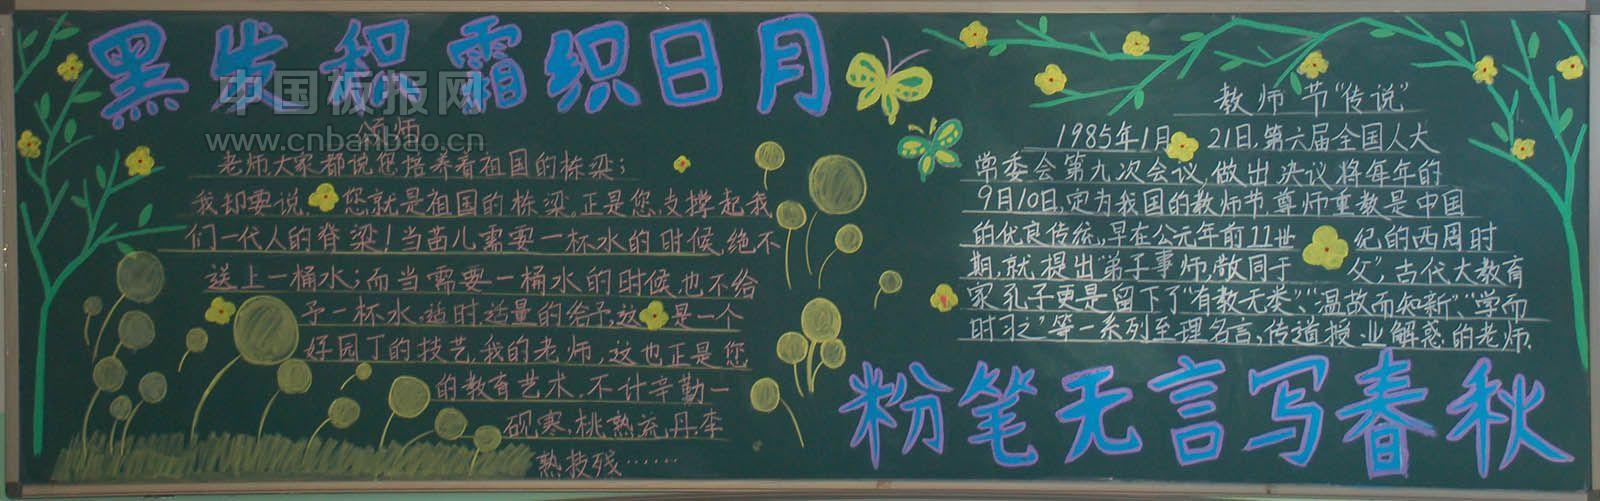 黑发积霜织日月
中国板报网
www.cnbanbao.cn
颂师
老师大家都说您培养着祖国的栋梁；
我却要说，您就是祖国的栋梁。正是您，支撑起我
们一代人的脊梁！当苗儿需要一杯水的时候，绝不
送上一桶水；而当需要一桶水的时候也不给
予一杯水，适时，适量的给予，这是一个
好园丁的技艺，我的老师，这也正是您
的教育艺术，不计辛勤一
砚寒，桃熟流丹，李
熟枝残……
教师节“传说”
1985年1月21日，第六届全国人大
常委会第九次会议，做出决议将每年的
9月10日，定为我国的教师节，尊师重教是中国
的优良传统，早在公元年前11世纪的西周时
期，就提出“弟子事师，敬同于父”，古代大教育
家孔子更是留下了“有教无类”、“温故而知新”、“学而
时习之”等一系列至理名言，传道授业解惑的老师，
粉笔无言写春秋